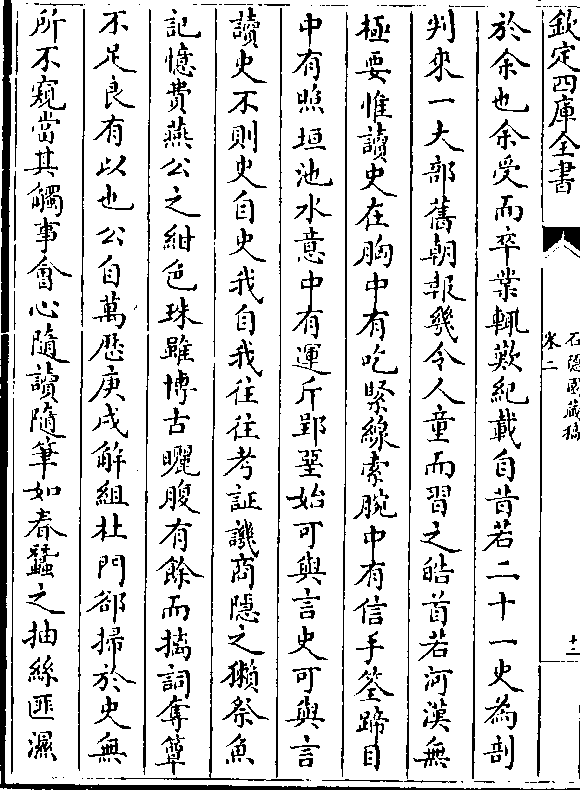 欽定四庫全書
石隱園藏稿
卷二
十二
於余也余受而卒業輒歎紀載自昔若二十一史為剖
判來一大部舊朝報幾令人童而習之皓首若河漢無
極要惟讀史在胸中有吃緊線索腕中有信手筌蹄目
中有照垣池水意中有運斤郢堊始可與言史可與言
讀史不則史自史我自我往往考証譏商隱之獺祭魚
記憶費燕公之紺色珠雖博古曬腹有餘而摛詞奪簟
不足良有以也公自萬歷庚戌解組杜門郤掃於史無
所不窺當其觸事會心隨讀隨筆如春蠶之抽絲匪濕